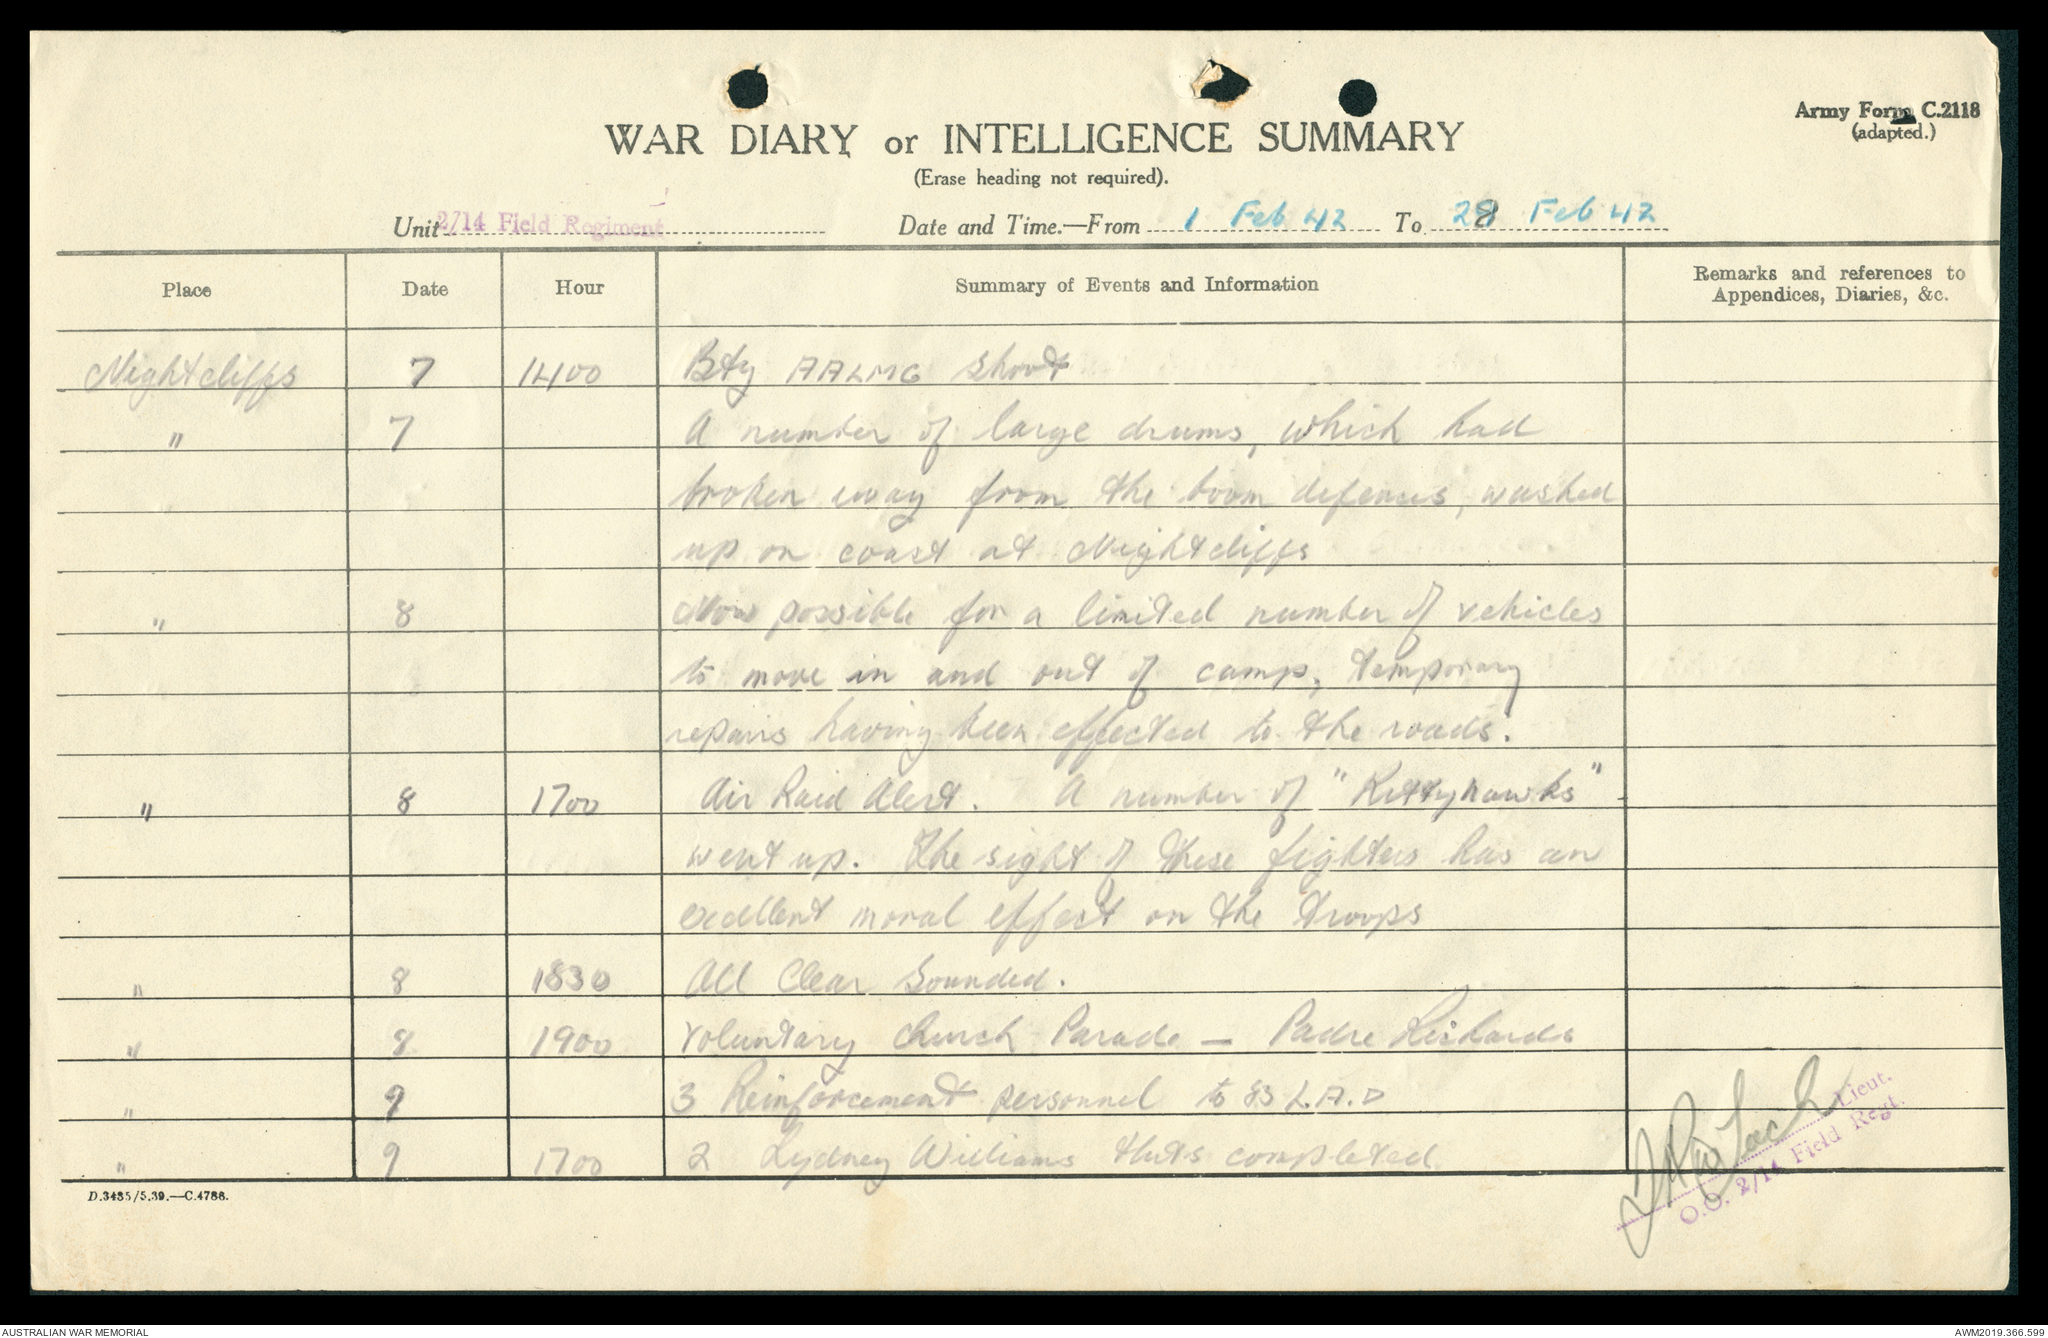 Army Form C.2118
(adapted.)
WAR DIARY or INTELLIGENCE SUMMARY
(Erase heading not required).
Unit 2/14 Field Regiment Date and Time.—From 1 Feb 42 To 28 Feb 42
Place Date Hour Summary of Events and Information Remarks and references to
Appendices, Diaries, &c.
Nightcliffs 7 1400 Bty AALMG Shoot
" 7 A number of large drums, which had
broken away from the boom defences, washed
up on coast at Nightcliffs
" 8 Now possible for a limited number of vehicles
to move in and out of camp, temporary
repairs having been effected to the roads.
" 8 1700 Air Raid Alert. A number of "Kittyhawks"
went up. The sight of these fighters has an
excellent moral effect on the troops
" 8 1830 All Clear Sounded.
" 8 1900 Voluntary Church Parade — Padre Richards
" 9 3 Reinforcement personnel to 83 L.A.D
" 9 1700 2 Sydney Williams Huts completed
Lieut.
O.C. 2/14 Field Regt.
D.3485/5.39.—C.4788.
AUSTRALIAN WAR MEMORIAL AWM2019.366.599